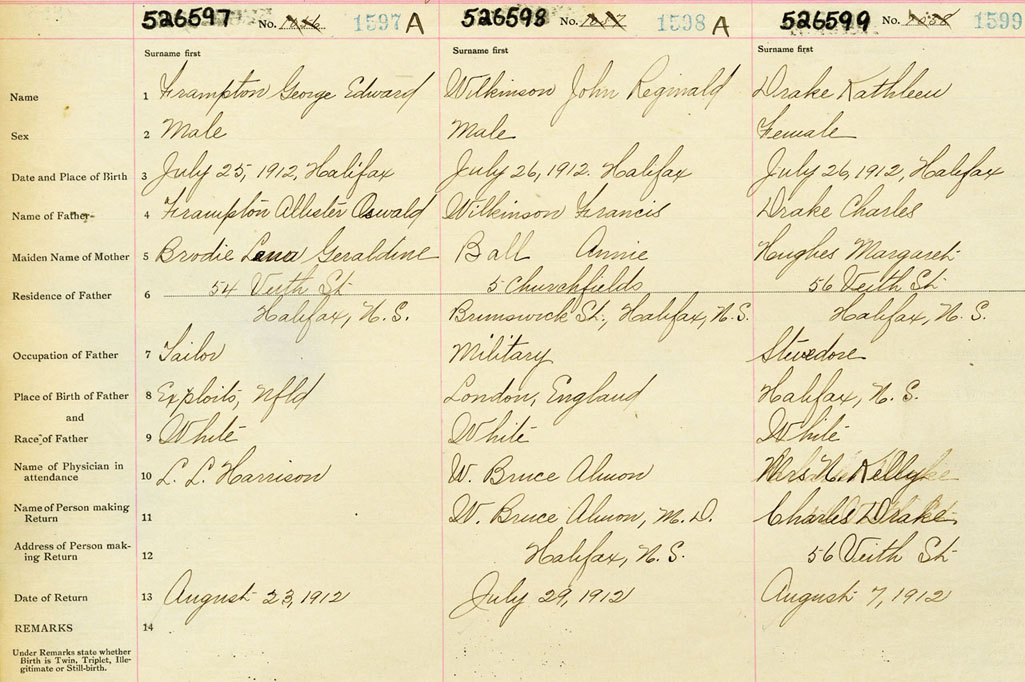 526597 No. 1597 A 526598 No. 1598 A 526599 No. 1599
Surname first Surname first Surname first
Name 1 Frampton George Edward Wilkinson John Reginald Drake Kathleen
Sex 2 Male Male Female
Date and Place of Birth 3 July 25, 1912, Halifax July 26, 1912. Halifax July 26, 1912, Halifax
Name of Father 4 Frampton Allister Oswald Wilkinson Francis Drake Charles
Maiden Name of Mother 5 Brodie Lena Geraldine Ball Annie Hughes Margaret
54 Veith St. 5 Churchfields 56 Veith St.
Residence of Father 6
Halifax, N.S. Brunswick St., Halifax, N.S. Halifax, N.S.
Occupation of Father 7 Tailor Military Stevedore
Place of Birth of Father 8 Exploits, Nfld London, England Halifax, N.S.
and
Race of Father 9 White White White
Name of Physician in attendance 10 L. L. Harrison W. Bruce Almon Mrs N. Kelly
Name of Person making Return 11 W. Bruce Almon, M.D. Charles Drake
Address of Person making Return 12 Halifax, N.S. 56 Veith St.
Date of Return 13 August 23, 1912 July 29, 1912 August 7, 1912
REMARKS 14
Under Remarks state whether
Birth is Twin, Triplet, Ille-
gitimate or Still-birth.